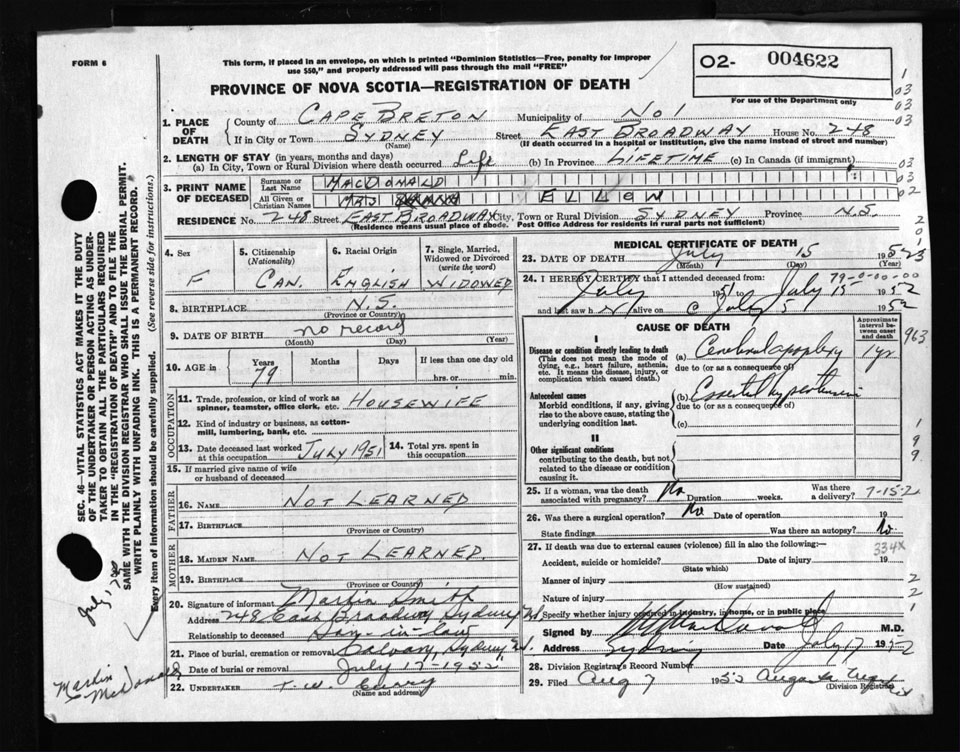 FORM 6
This form, if placed in an envelope, on which is printed "Dominion Statistics—Free, penalty for improper
use $50," and properly addressed will pass through the mail "FREE"
PROVINCE OF NOVA SCOTIA—REGISTRATION OF DEATH
O2- 004622
For use of the Department only
1. PLACE OF DEATH
County of CAPE BRETON Municipality of No 1
If in City or Town SYDNEY Street EAST BROADWAY House No. 248
(Name) (If death occurred in a hospital or institution, give the name instead of street and number)
2. LENGTH OF STAY (in years, months and days)
(a) In City, Town or Rural Division where death occurred Life (b) In Province LIFETIME (c) In Canada (if immigrant)
3. PRINT NAME OF DECEASED
Surname or Last Name MACDONALD
All Given or Christian Names MRS ELLEN
RESIDENCE No. 248 Street EAST BROADWAY City, Town or Rural Division SYDNEY Province N.S.
(Residence means usual place of abode. Post Office Address for residents in rural parts not sufficient)
4. Sex F
5. Citizenship (Nationality) CAN.
6. Racial Origin ENGLISH
7. Single, Married, Widowed or Divorced (write the word) WIDOWED
8. BIRTHPLACE N.S.
(Province or Country)
9. DATE OF BIRTH no record
(Month) (Day) (Year)
10. AGE in Years 79 Months Days If less than one day old
hrs. or min.
OCCUPATION
11. Trade, profession, or kind of work as spinner, teamster, office clerk, etc. HOUSEWIFE
12. Kind of industry or business, as cotton-mill, lumbering, bank, etc.
13. Date deceased last worked at this occupation JULY 1951
14. Total yrs. spent in this occupation
15. If married give name of wife or husband of deceased
FATHER
16. NAME NOT LEARNED
17. BIRTHPLACE
(Province or Country)
MOTHER
18. MAIDEN NAME NOT LEARNED.
19. BIRTHPLACE
(Province or Country)
20. Signature of informant Martin Smith
Address 248 East Broadway Sydney
Relationship to deceased Son-in-law
21. Place of burial, cremation or removal Calvary, Sydney
Date of burial or removal July 17-1952
22. UNDERTAKER T. W. Curry
(Name and address)
MEDICAL CERTIFICATE OF DEATH
23. DATE OF DEATH July 15 1952
(Month) (Day) (Year)
79-0-00-00
24. I HEREBY CERTIFY that I attended deceased from:
July 1951 to July 15 1952
and last saw h alive on July 5 1952
CAUSE OF DEATH
Approximate interval between onset and death
I
Disease or condition directly leading to death
(This does not mean the mode of dying, e.g., heart failure, asthenia, etc. It means the disease, injury, or complication which caused death.)
(a) Cerebral apoplexy 1 yr.
due to (or as a consequence of)
Antecedent causes
Morbid conditions, if any, giving rise to the above cause, stating the underlying condition last.
(b) Essential hypertension
due to (or as a consequence of)
(c)
II
Other significant conditions
contributing to the death, but not related to the disease or condition causing it.
963
25. If a woman, was the death associated with pregnancy? No Duration weeks. Was there a delivery?
7-15-2
26. Was there a surgical operation? No Date of operation 19
State findings Was there an autopsy? No
334X
27. If death was due to external causes (violence) fill in also the following:—
Accident, suicide or homicide? Date of injury 19
(State which)
Manner of injury
(How sustained)
Nature of injury
Specify whether injury occurred in industry, in home, or in public place
Signed by M.D.
Address Sydney Date July 17 1952
28. Division Registrar's Record Number
29. Filed Aug 7 1952
(Division Registrar)
SEC. 46—VITAL STATISTICS ACT MAKES IT THE DUTY
OF THE UNDERTAKER OR PERSON ACTING AS UNDER-
TAKER TO OBTAIN ALL THE PARTICULARS REQUIRED
IN THE "REGISTRATION OF DEATH" AND TO FILE THE
SAME WITH THE DIVISION REGISTRAR WHO SHALL ISSUE THE BURIAL PERMIT.
WRITE PLAINLY WITH UNFADING INK. THIS IS A PERMANENT RECORD.
Every item of information should be carefully supplied. (See reverse side for instructions.)
Martin
McDonald